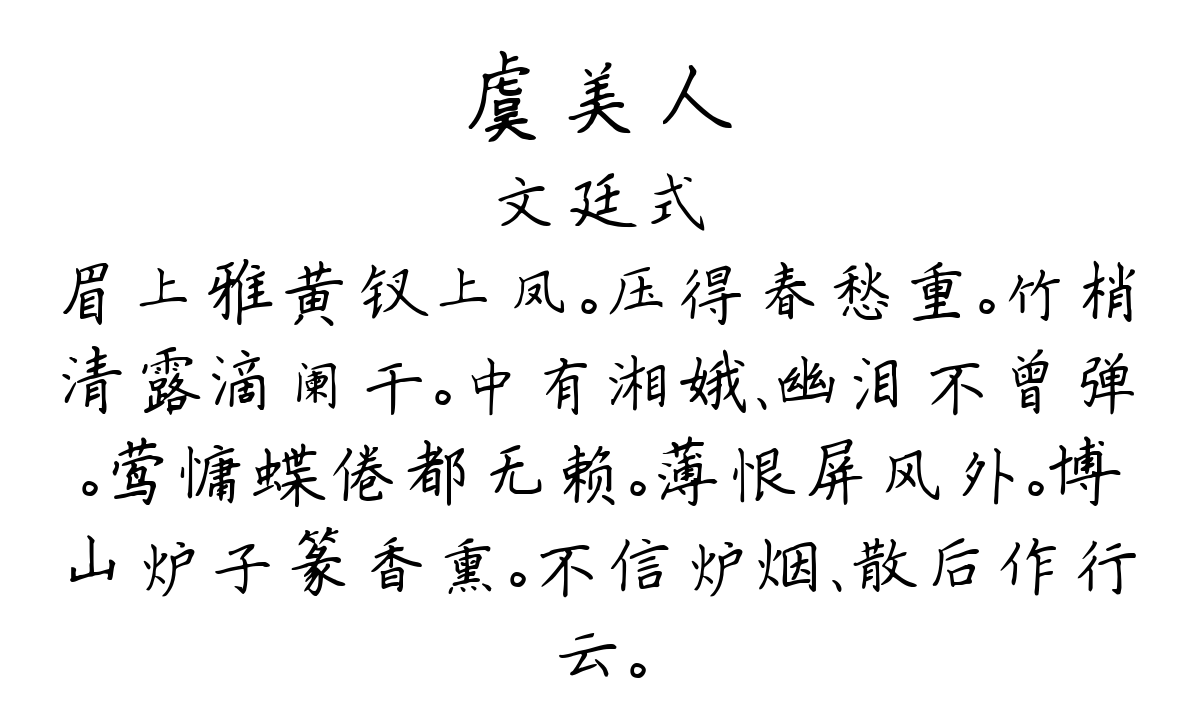 虞美人
文廷式
眉上雅黄钗上凤。压得春愁重。竹梢
清露滴阑干。中有湘娥、幽泪不曾弹
。莺慵蝶倦都无赖。薄恨屏风外。博
山炉子篆香熏。不信炉烟、散后作行
云。